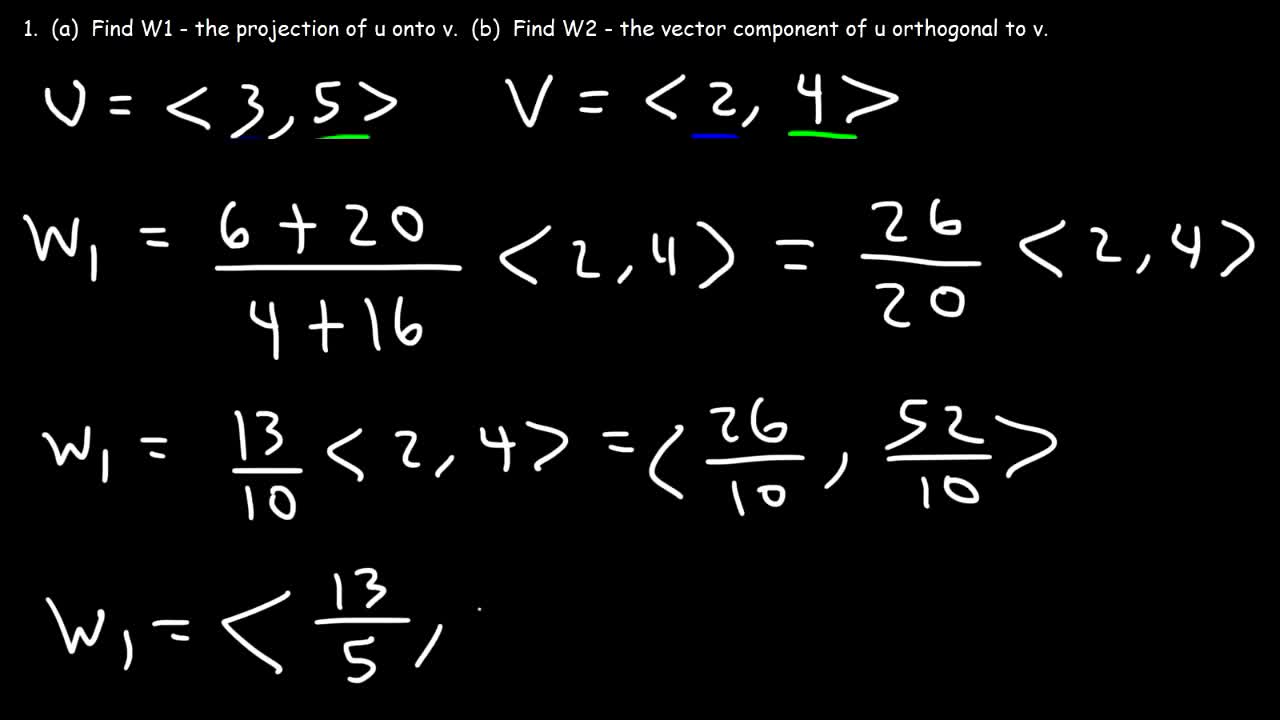 1. (a) Find W1 - the projection of u onto v. (b) Find W2 - the vector component of u orthogonal to v.
U = < 3, 5 > V = < 2, 4 >
W₁ = (6 + 20)/(4 + 16) < 2, 4 > = 26/20 < 2, 4 >
W₁ = 13/10 < 2, 4 > = < 26/10, 52/10 >
W₁ = < 13/5,